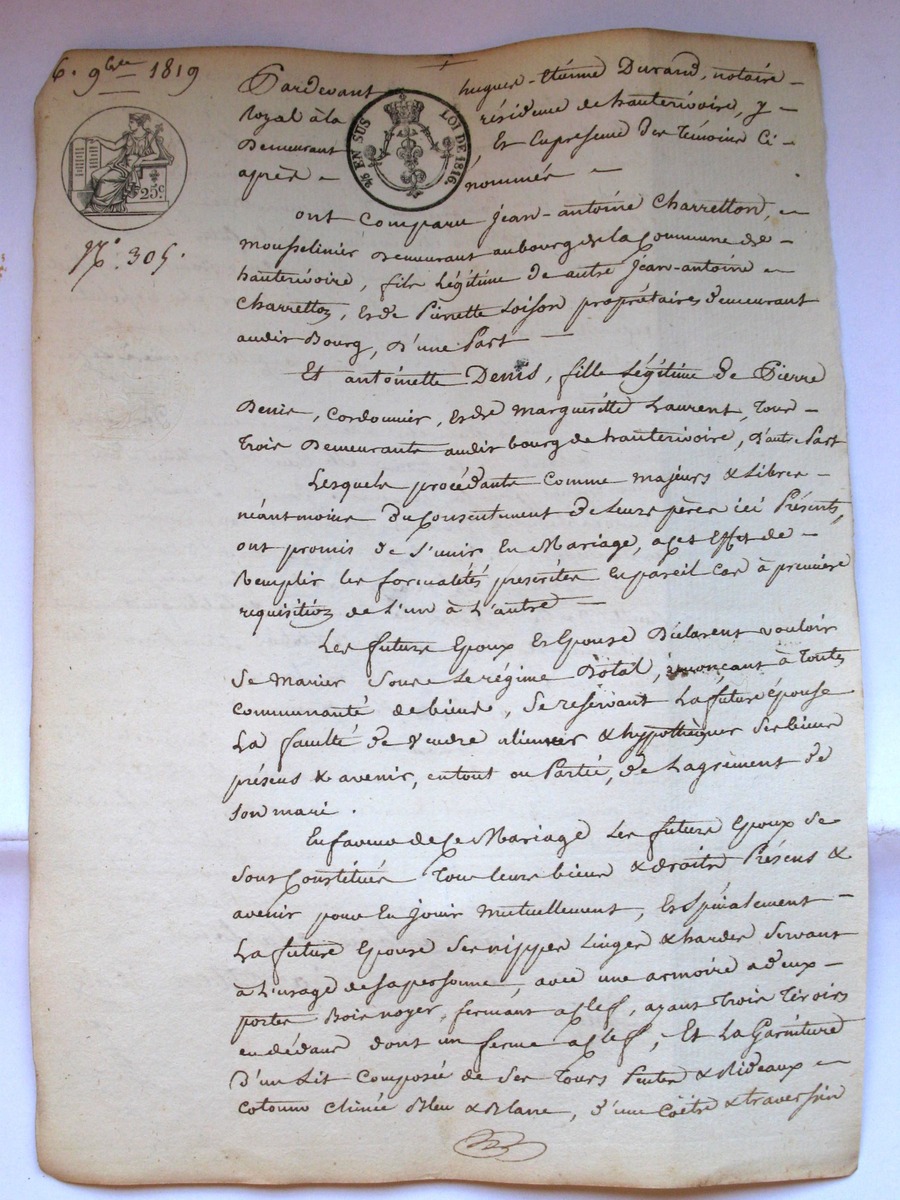 6. 9bre 1819
Pardevant hugues-étienne Durand, notaire
Royal à la résidence de hauterivoire, y
Demeurant, Et En présence des témoins Ci-
après nommés
25 EN SUS LOI DE 1816.
25c
No. 305.
ont Comparu jean-antoine Charretton,
mousselinier Demeurant au bourg de la Commune de
hauterivoire, fils Légitime de autre jean-antoine
Charretton, et de Pierrette Loison propriétaires demeurant
audit Bourg, D'une Part
Et antoinette Denis, fille Légitime de Pierre
Denis, Cordonnier, et de marguerite Laurent, tous
trois Demeurants audit bourg de hauterivoire, D'autre Part
Lesquels procédants Comme majeurs & Libres
néantmoins Du Consentement de Leurs pères ici Présents,
ont promis de S'unir En Mariage, a cet Effet de
Remplir les formalités prescrites En pareil Cas à première
requisition de L'un à L'autre
Les futurs Epoux et Epouse Déclarent vouloir
Se marier Sous Le régime Dotal, renonçant à toutes
Communauté de biens, Se réservant La future épouse
La faculté de vendre alienner & hypothèquer Ses biens
présens & avenir, en tout ou Partie, de L'agrément de
Son mari.
En faveur de Ce Mariage Les futurs Epoux Se
Sont Constitués Tous leurs biens & droits Présens &
avenir pour En jouir mutuellement, Et Spécialement
La future Epouse Ses nippes Linges & hardes Servant
à L'usage de Sa personne, avec une armoire a deux
portes Bois noyer, fermant a Clef, ayant trois tiroirs
en dédans dont un ferme a Clef, Et La Garniture
D'un Lit Composée de Ses Tours Pentes & Rideaux
Cotonne Chinée Bleu & Blanc, d'une Coëtre & traversin